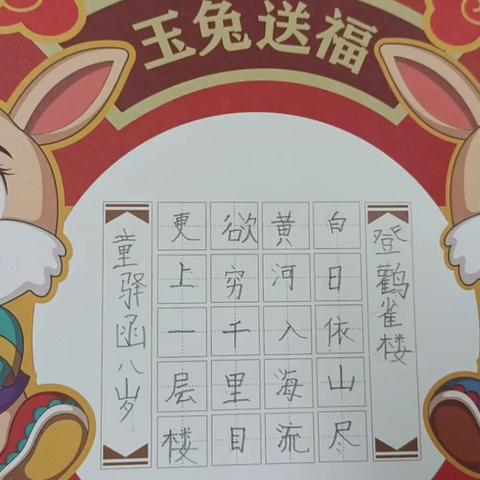 玉兔送福
登鹳雀楼
白日依山尽
黄河入海流
欲穷千里目
更上一层楼
童驿函八岁